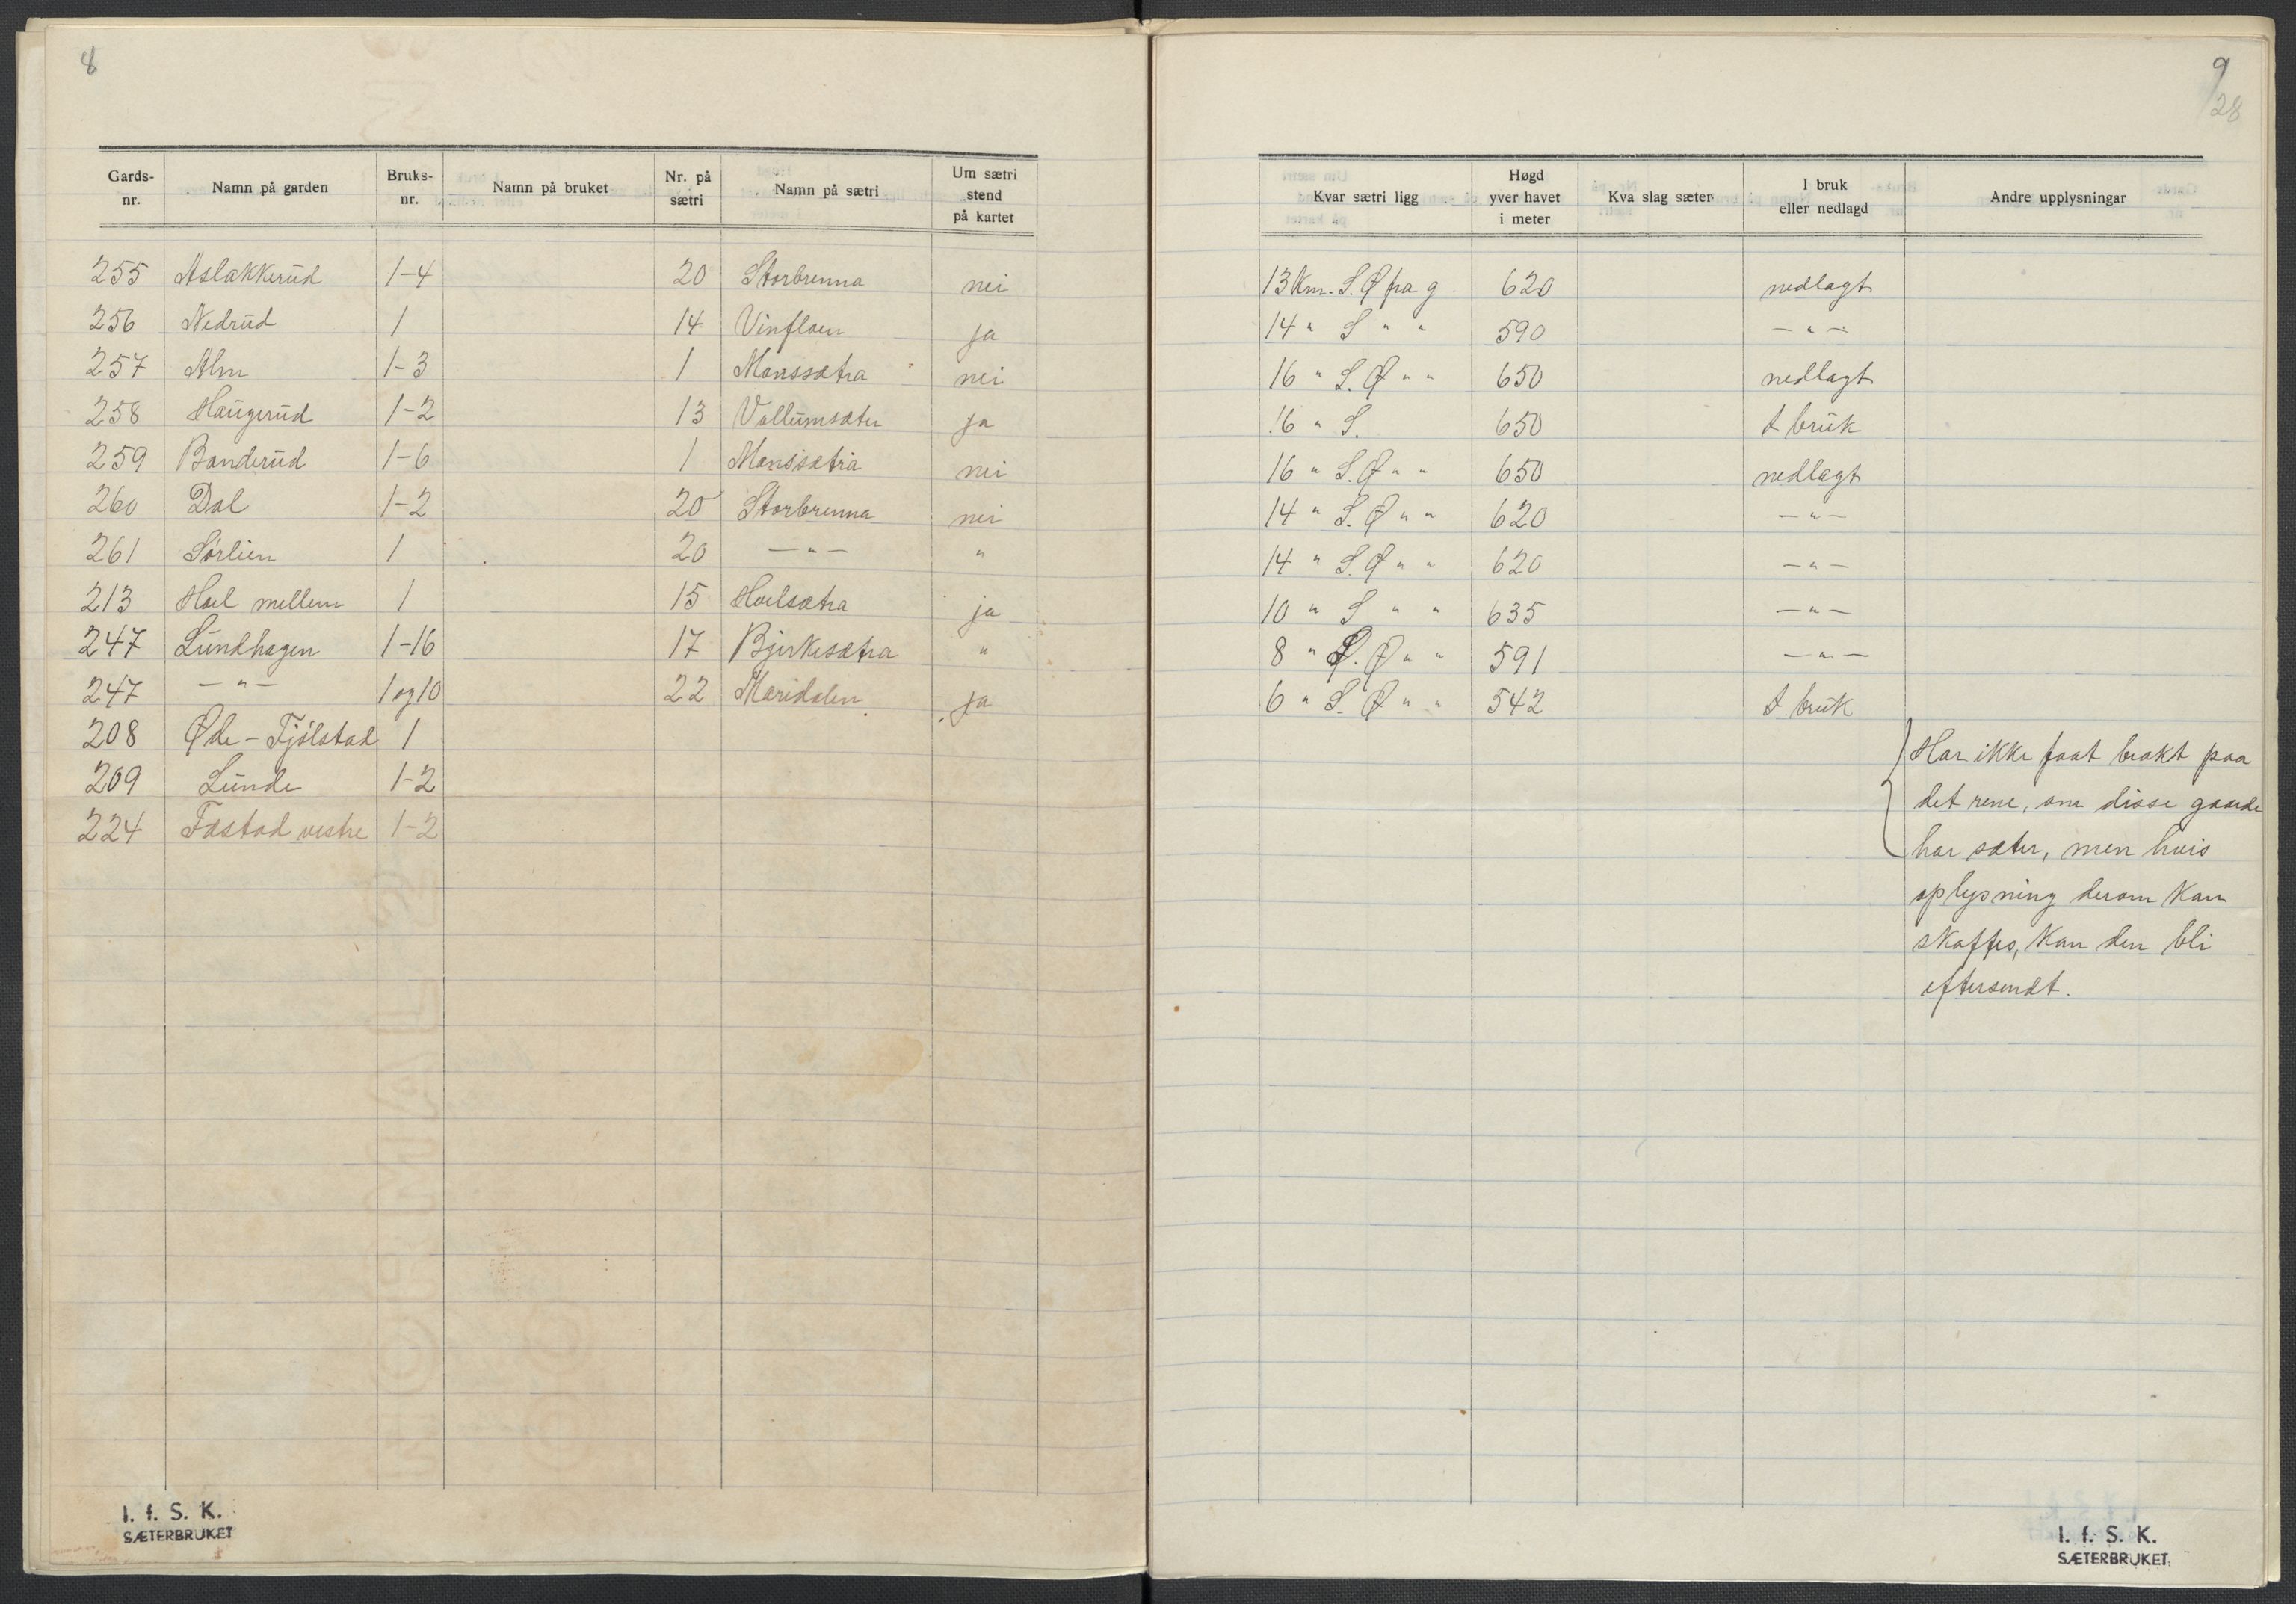 8
Gards-nr. Namn på garden Bruks-nr. Namn på bruket Nr. på sætri Namn på sætri Um sætri stend på kartet
255 Aslakkerud 1-4 20 Storbrenna nei
256 Nedrud 1 14 Vinfloen ja
257 Alm 1-3 1 Monssætra nei
258 Haugerud 1-2 13 Vollumsæter ja
259 Banderud 1-6 1 Monssætra nei
260 Dal 1-2 20 Storbrenna nei
261 Sørlien 1 20 — " — "
213 Hoel mellem 1 15 Hoelsætra ja
247 Lundhagen 1-16 17 Bjerkesætra "
247 — " — 1 og 10 22 Maridalen ja
208 Øde-Fjölstad 1
209 Lunde 1-2
224 Fæstad vestre 1-2
I. f. S. K.
SÆTERBRUKET
9
28
Kvar sætri ligg Høgd yver havet i meter Kva slag sæter I bruk eller nedlagd Andre upplysningar
13 Km. S.Ø fra g 620 nedlagt
14 " S " " 590 — " —
16 " S.Ø " " 650 nedlagt
16 " S. 650 I bruk
16 " S.Ø " " 650 nedlagt
14 " S.Ø " " 620 — " —
14 " S.Ø " " 620 — " —
10 " S " " 635 — " —
8 " S.Ø " " 591 — " —
6 " S.Ø " " 542 I bruk
Har ikke faat brakt paa
det rene, om disse gaarde
har sæter, men hvis
oplysning derom kan
skaffes, kan den bli
eftersendt.
I. f. S. K.
SÆTERBRUKET